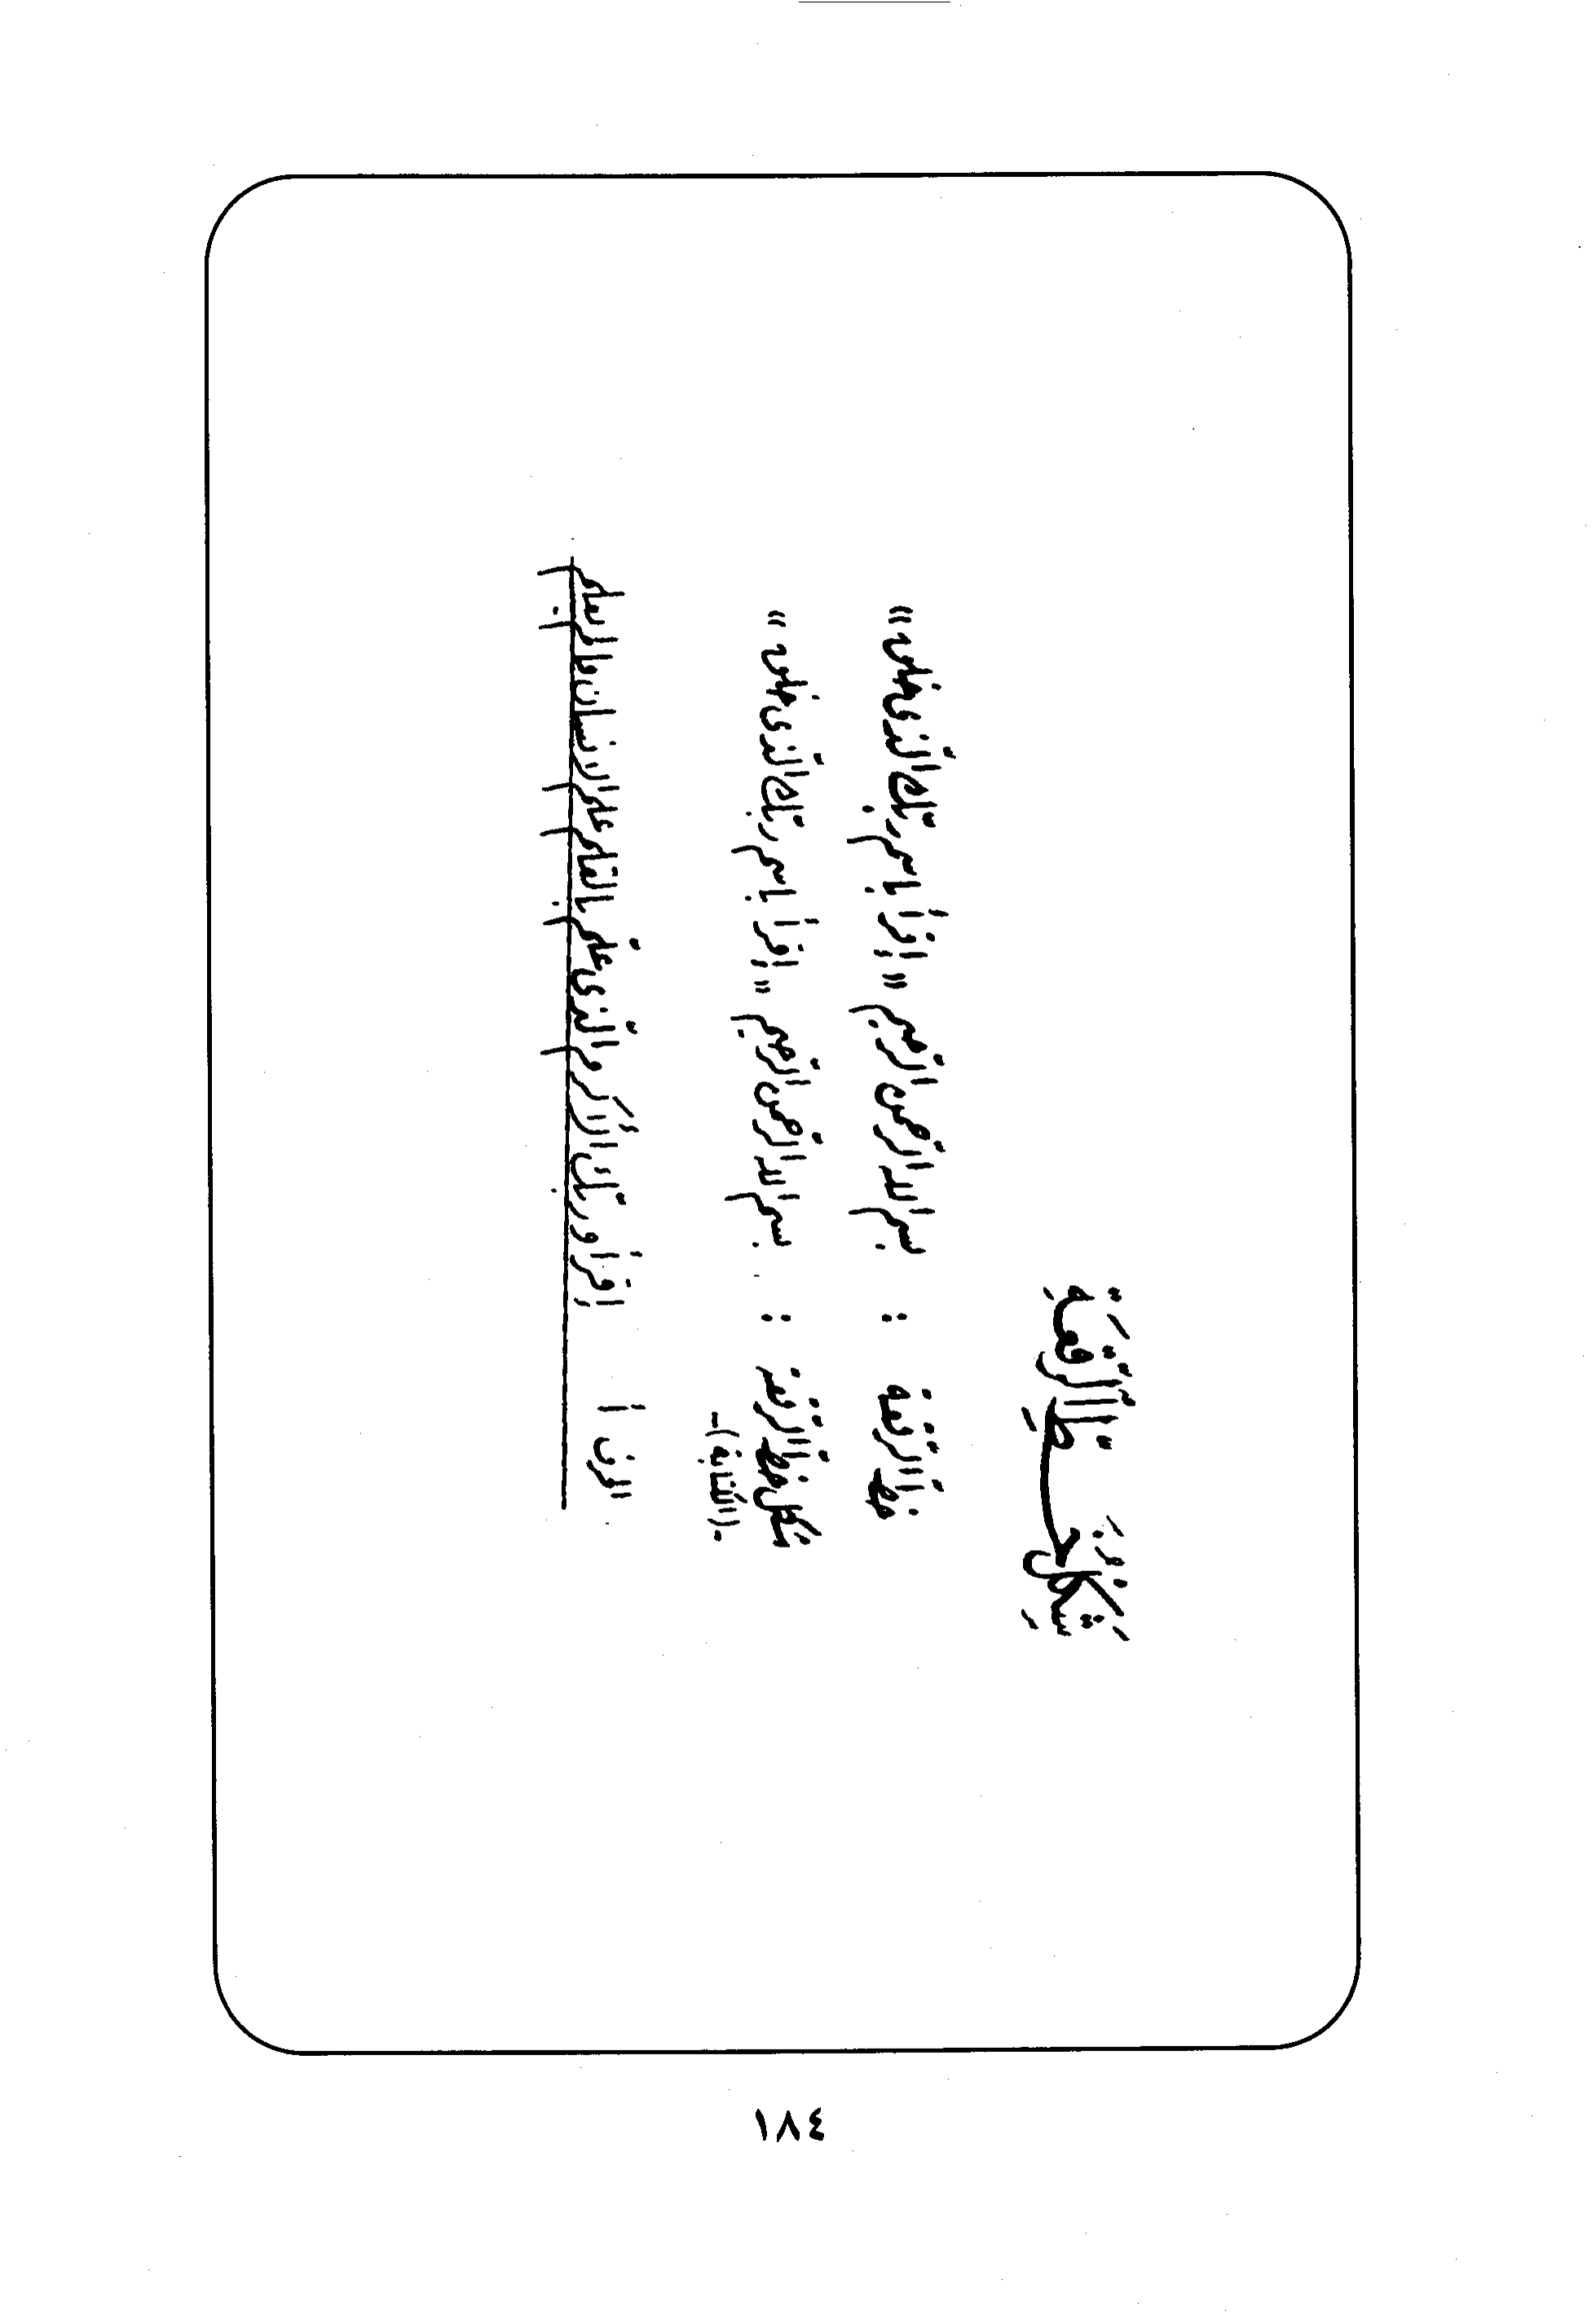 شكل خط الرقعة
خط الرقعة : بسم الله الرحمن الرحيم « إقرأ باسم ربّك الّذي خلق »
شكل خط الرقعة : بسم الله الرحمن الرحيم « إقرأ باسم ربّك الّذي خلق »
ـ (الكتابة) ـ
إقرأ وربّك الأكرم الّذي علّم بالقلم علم الإنسان ما لم يعلم
١٨٤